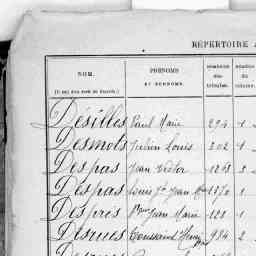 RÉPERTOIRE A
NOM.
PRÉNOMS
ET SURNOMS.
NUMÉROS
des
NUMÉRO
du
Désilles Paul Marie 294 1
Desmots Julien Louis 202 1
Despas Jean Victor 1268 3
Despas Louis Jean 1370 1
Després Jean Marie 128 1
Desrues Toussaint Henry 984 2